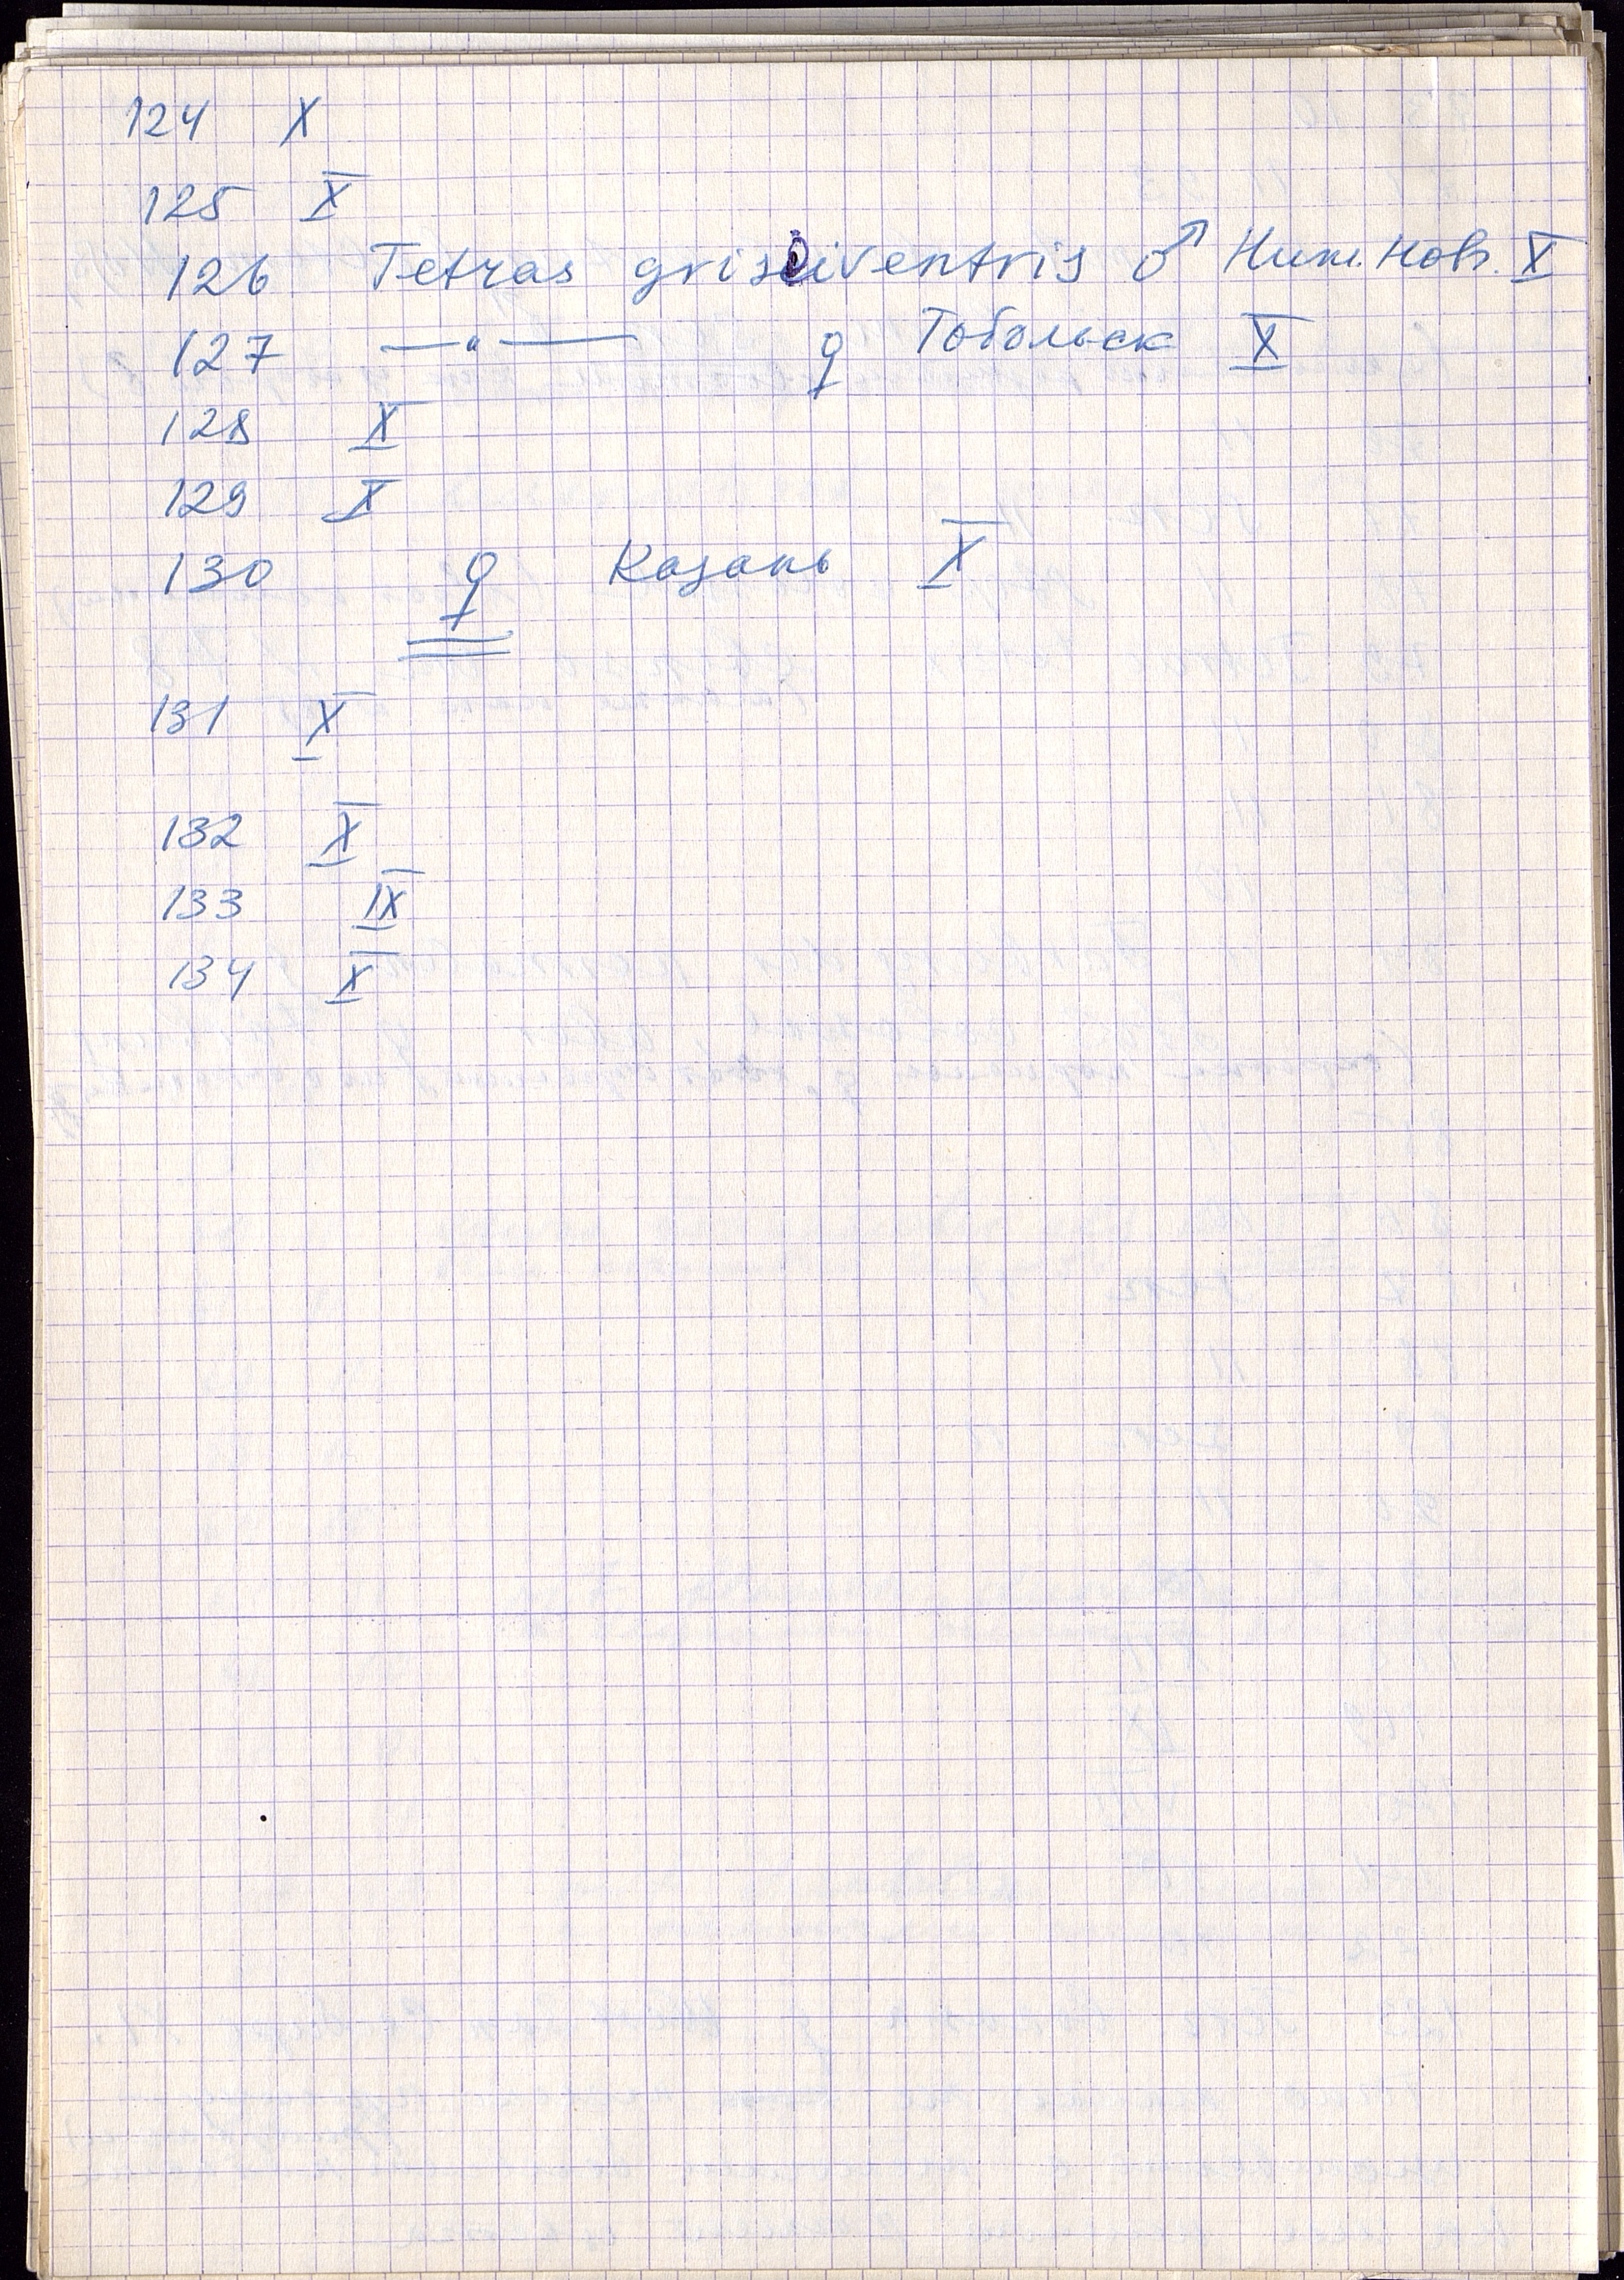 124 X
125 X
126 Tetras griseiventris ♂ Ниж. Нов. X
127 —"— ♀ Тобольск X
128 X
129 X
130 ♀ Казань X
131 X
132 X
133 IX
134 X